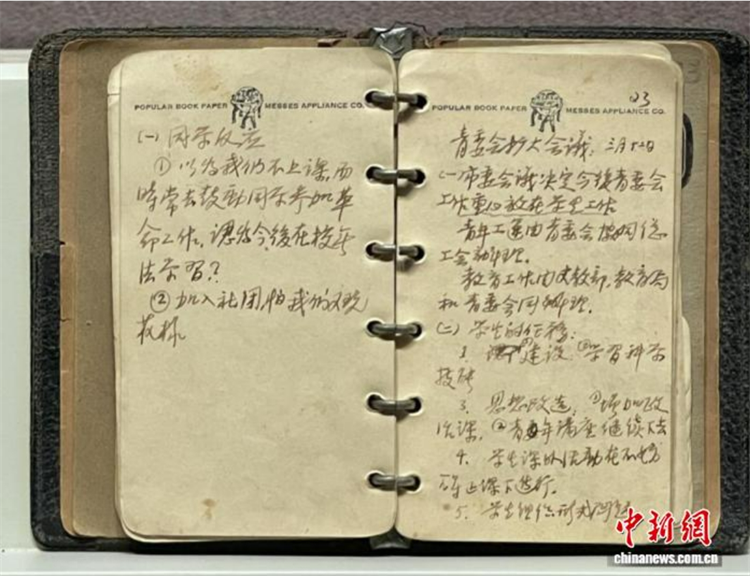 POPULAR BOOK PAPER MESSES APPLIANCE CO.
(一)同学反应
①以为我们不上课,而
时常去鼓動同学参加革
命工作,认为今後在校无
法学习?
②加入社团怕我们
POPULAR BOOK PAPER MESSES APPLIANCE CO.
23
青委会扩大会议:三月
(一)市委会议决定今後青委会
工作重心放在学生工作
青年工运由青委会协同总
工会办理。
教育工作由文教部,教育局
和青委会同办理。
(二)学生的任务:
1. 建设 ②学习科学
技术
3. 思想改造,①增加政
治课,②青年讲座继续下去
4. 学生课外活动在不妨
碍上课下进行。
5. 学生组织形式问题
中新網
chinanews.com.cn